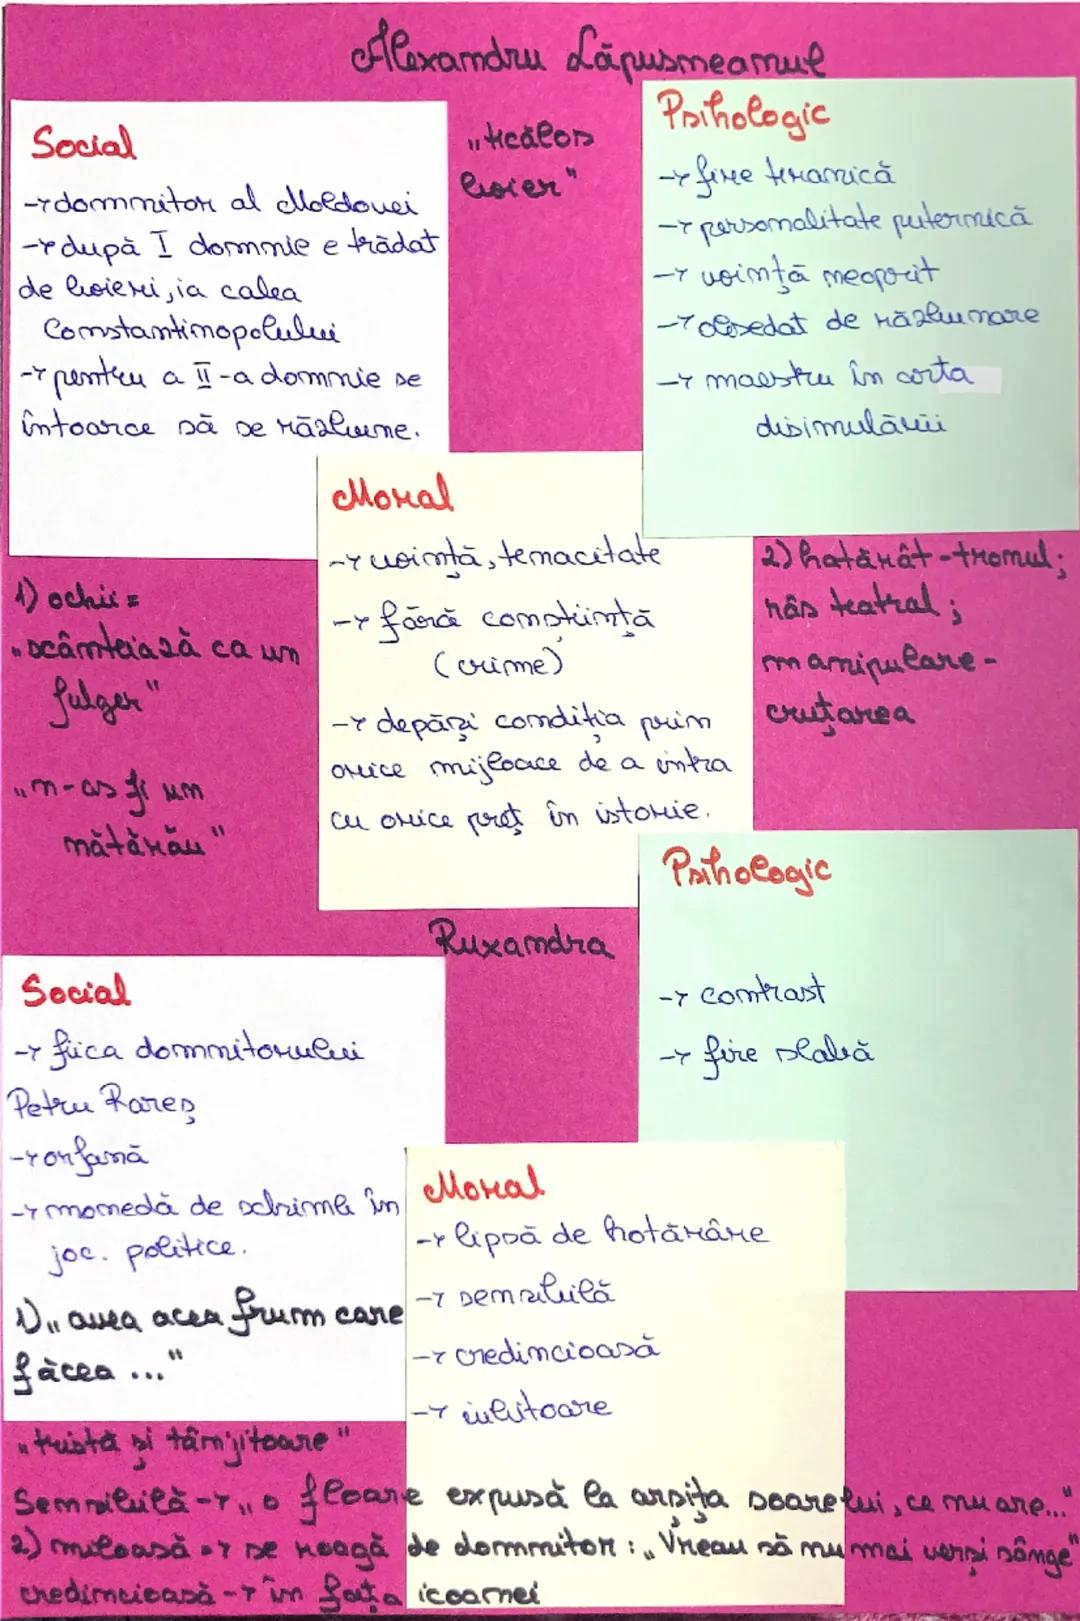 Alexandru Lăpusneanul
Social
→ domnitor al Moldovei
→ după I domnie e trădat
de boieri, ia calea
Constantinopolului
→ pentru a II-a domnie se
întoarce să se răzbune.
„ticălos
boier"
Psihologic
→ fire tiranică
→ personalitate puternică
→ voință neoprit
→ obsedat de răzbunare
→ maestru în corta
disimulării
Moral
→ voință, tenacitate
→ fără conștiință
(crime)
→ depărzi condiția prin
orice mijloace de a intra
cu orice preț în istorie.
1) ochii =
„scânteiază ca un
fulger"
„n-as fi un
nătărău"
2) hatărât - tronul;
râs teatral;
manipulare -
cruțarea
Ruxandra
Social
→ fiica domnitorului
Petru Rareș
→ orfană
→ monedă de schimb în
joc. politice.
1) „avea acea frum care
făcea ..."
„tristă și tânjitoare"
Psihologic
→ contrast
→ fire slabă
Moral
→ lipsă de hotărâre
→ sensibilă
→ credincioasă
→ iubitoare
Sensibilă → „o floare expusă la arșița soarelui, ce nu are..."
2) miloasă → se roagă de domnitor: „Vreau să nu mai verși sânge"
credincioasă → în fața icoanei